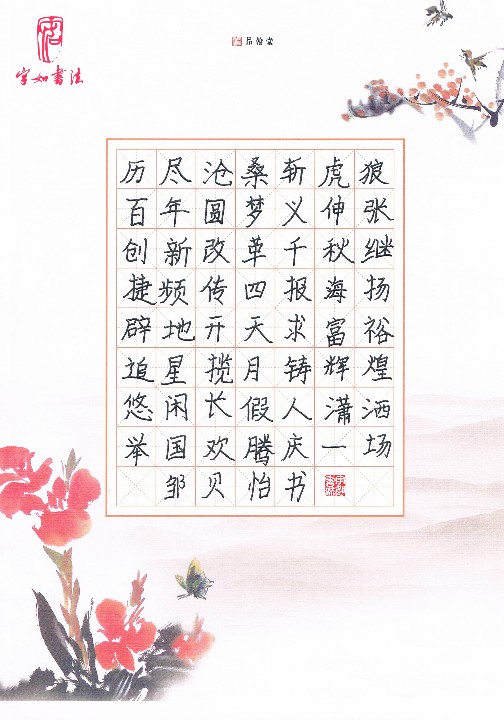 字如書法
历尽沧桑斩虎狼
百年圆梦义伸张
创新改革千秋继
捷频传四报海扬
辟地开天求富裕
追星揽月铸辉煌
悠闲长假人潇洒
举国欢腾庆一场
邹贝怡书